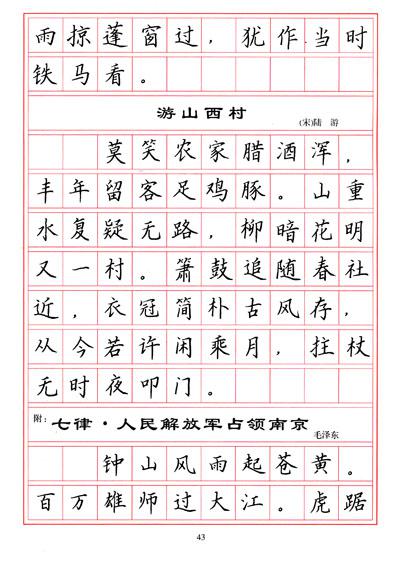 雨掠蓬窗过，犹作当时
铁马看。
游山西村
(宋)陆 游
莫笑农家腊酒浑，
丰年留客足鸡豚。山重
水复疑无路，柳暗花明
又一村。箫鼓追随春社
近，衣冠简朴古风存，
从今若许闲乘月，拄杖
无时夜叩门。
附：七律·人民解放军占领南京
毛泽东
钟山风雨起苍黄。
百万雄师过大江。虎踞
43